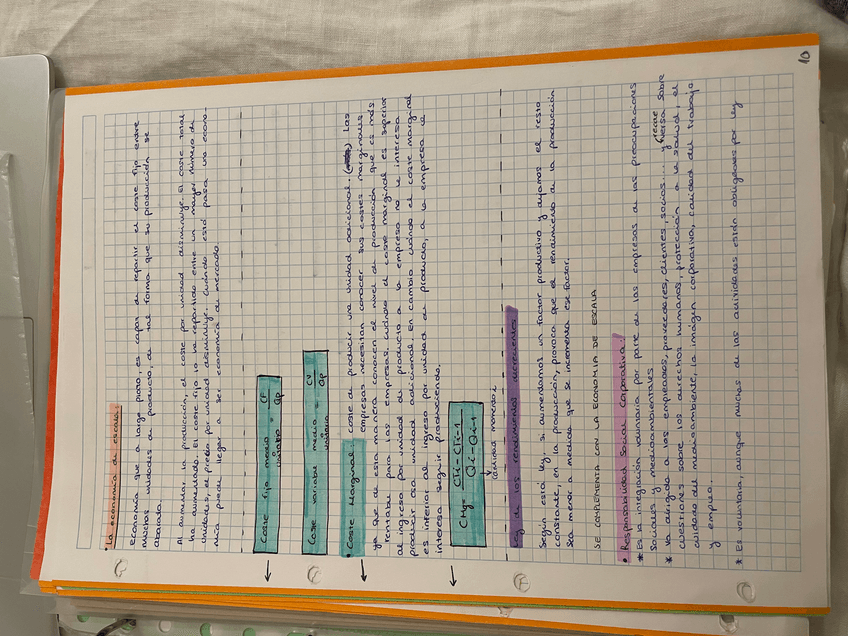 10
• La economía de escala:
Economía que a largo plazo, es capaz de repartir el coste fijo entre
muchas unidades de producto, de tal forma que su producción se
abarata.
Al aumentar la producción, el coste por unidad disminuye. El coste total
ha aumentado. El coste fijo lo ha repartido entre un mayor número de
unidades, el precio por unidad disminuye. Cuándo esto pasa una econo-
mía puede llegar a ser economía de mercado
Coste fijo medio = CF / Qp
Coste variable medio = CV / Qp
variable
• Coste Marginal: coste de producir una unidad adicional. Las
empresas necesitan conocer sus costes marginales
ya que de esta manera conocen el nivel de producción que es más
rentable para las empresas. Cuándo el coste marginal es superior
al ingreso por unidad de producto a la empresa no le interesa
producir esa unidad adicional. En cambio cuándo el coste marginal
es inferior al ingreso por unidad de producto, a la empresa le
interesa seguir produciendo.
CMg = CTi - CTi-1 / Qi - Qi-1
cantidad momento i
Ley de los rendimientos decrecientes
Según está ley, si aumentamos un factor productivo y dejamos el resto
constante, en la producción, provoca que el rendimiento de la producción
sea menor a medida que se incrementa ese factor.
SE COMPLEMENTA CON LA ECONOMIA DE ESCALA
• Responsabilidad Social Corporativa:
* Es la integración voluntaria por parte de las empresas de las preocupaciones
sociales y medioambientales
* Va dirigida a los empleados, proveedores, clientes, socios... y versa sobre
recae
cuestiones sobre los derechos humanos, protección a la salud, el
cuidado del medioambiente, la imágen corporativa, calidad del trabajo
y empleo.
* Es voluntaria, aunque muchas de las actividades están obligadas por ley